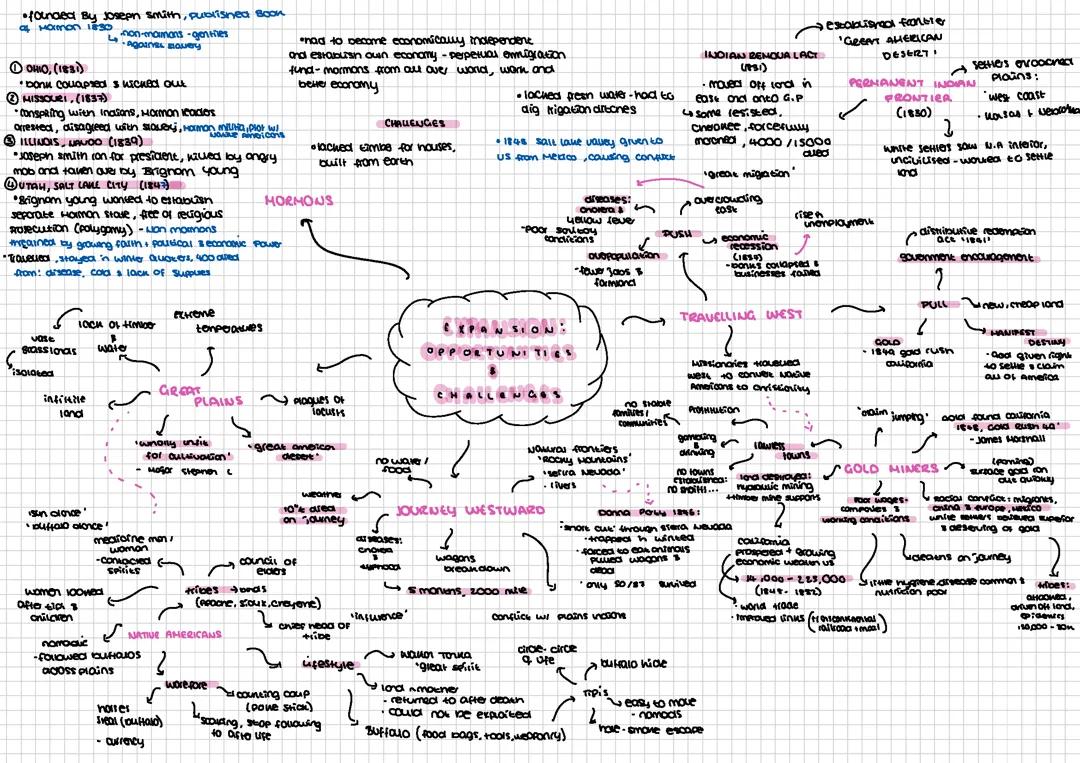 • founded By Joseph Smith, published Book
of Mormon 1830
non-mormons - gentiles
• Against slavery
① OHIO, (1831)
• bank collapsed & kicked out
② MISSOURI, (1837)
• conspiring with Indians, Mormon leaders
arrested, disagreed with slavery, Mormon militia, plot w/
Native Americans
③ ILLINOIS, NAVOO (1839)
• Joseph Smith ran for president, killed by angry
mob and taken over by Brigham Young
④ UTAH, SALT LAKE CITY (1847)
• Brigham young wanted to establish
separate Mormon State, free of religious
prosecution (polygamy) - Non mormons
threatened by growing faith + political & economic power
• Travelled, stayed in winter quaters, 400 died
from: disease, cold & lack of supplies
MORMONS
• had to become economically independent
and establish own economy - perpetual emmigration
fund - mormons from all over world, work and
better economy
CHALLENGES
• lacked timber for houses,
built from earth
• lacked fresh water - had to
dig irrigation ditches
• 1848 salt lake valley given to
US from Mexico, causing conflict
INDIAN REMOVAL ACT
(1831)
• moved off land in
east and onto G.P
some resisted,
cherokee, forcefully
marched, 4000/15000
died
established frontier
'GREAT AMERICAN
DESERT'
PERMANENT INDIAN
FRONTIER
(1830)
settlers encroached
plains:
• west coast
white settlers saw N.A inferior,
uncivilised - wanted to settle
land
EXPANSION:
OPPORTUNITIES
&
CHALLENGES
TRAVELLING WEST
PUSH
'great migration'
overcrowding
east
diseases:
cholera &
yellow fever
• Poor sanitary
conditions
overpopulation
- fewer jobs &
farmland
economic
recession
(1837)
- banks collapsed &
businesses failed
rise in
unemployment
PULL
distributive redemption
act '1841'
government encouragement
new, cheap land
MANIFEST
DESTINY
- God given right
to settle & claim
all of America
GOLD
• 1849 gold rush
california
Missionaries travelled
west to convert Native
Americans to christianity
GREAT
PLAINS
lack of timber
&
water
extreme
temperatures
vast
grasslands
isolated
infinite
land
plagues of
locusts
'wholly unfit
for cultivation'
- Major Stephen L
'great american
desert'
'sun dance'
'buffalo dance'
JOURNEY WESTWARD
no water/
food
weather
10% died
on journey
diseases:
cholera
&
typhoid
wagons
break down
5 months, 2000 mile
Natural frontiers
• 'Rocky Mountains'
• 'Sierra Nevada'
• rivers
Donna Party 1846:
• 'short cut' through Sierra Nevada
- trapped in winter
- forced to eat animals
pulled wagons &
dead
• only 50/87 survived
conflict w/ plains indians
'influence'
GOLD MINERS
'claim
jumping'
gold found california
1848, Gold Rush 49'
- James Marshall
(panning)
surface gold ran
out quickly
lawless
towns
Prostitution
no stable
families/
communities
gambling
&
drinking
no towns
established:
no sheriff...
land destroyed:
hydraulic mining
+ timber mine supports
poor wages-
companies &
working conditions
racial conflict: migrants,
china & europe, mexico
white settlers believed superior
& deserving of gold
accidents on journey
little hygiene, disease common &
nutrition poor
tribes:
attacked,
driven off land,
epidemics
150,000 - 30k
california
prospered + growing
economic wealth US
14,000 - 223,000
(1848 - 1852)
• world trade
• improved links (transcontinental
railroad + mail)
NATIVE AMERICANS
tribes → bands
(Apache, Sioux, Cheyenne)
medicine man/
woman
- contacted
spirits
council of
elders
chief head of
tribe
women looked
after tipi &
children
nomadic
- followed buffalos
across plains
warefare
horses
steal (buffalo)
- currency
counting coup
(poke stick)
scalping, stop following
to after life
lifestyle
Wakan Tanka
'great spirit'
land = mother
- returned to after death
- could not be exploited
Buffalo (food bags, tools, weaponry)
Tipi's
circle - circle
of life
buffalo hide
easy to move
- nomads
hole - smoke escape